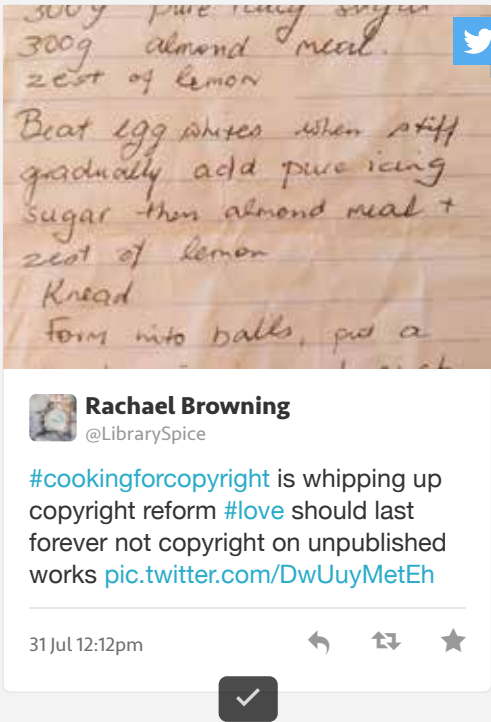 300g pure icing sugar
300g almond meal.
zest of lemon
Beat egg whites when stiff
gradually add pure icing
sugar then almond meal +
zest of lemon
Knead
Form into balls, put a
Rachael Browning
@LibrarySpice
#cookingforcopyright is whipping up
copyright reform #love should last
forever not copyright on unpublished
works pic.twitter.com/DwUuyMetEh
31 Jul 12:12pm